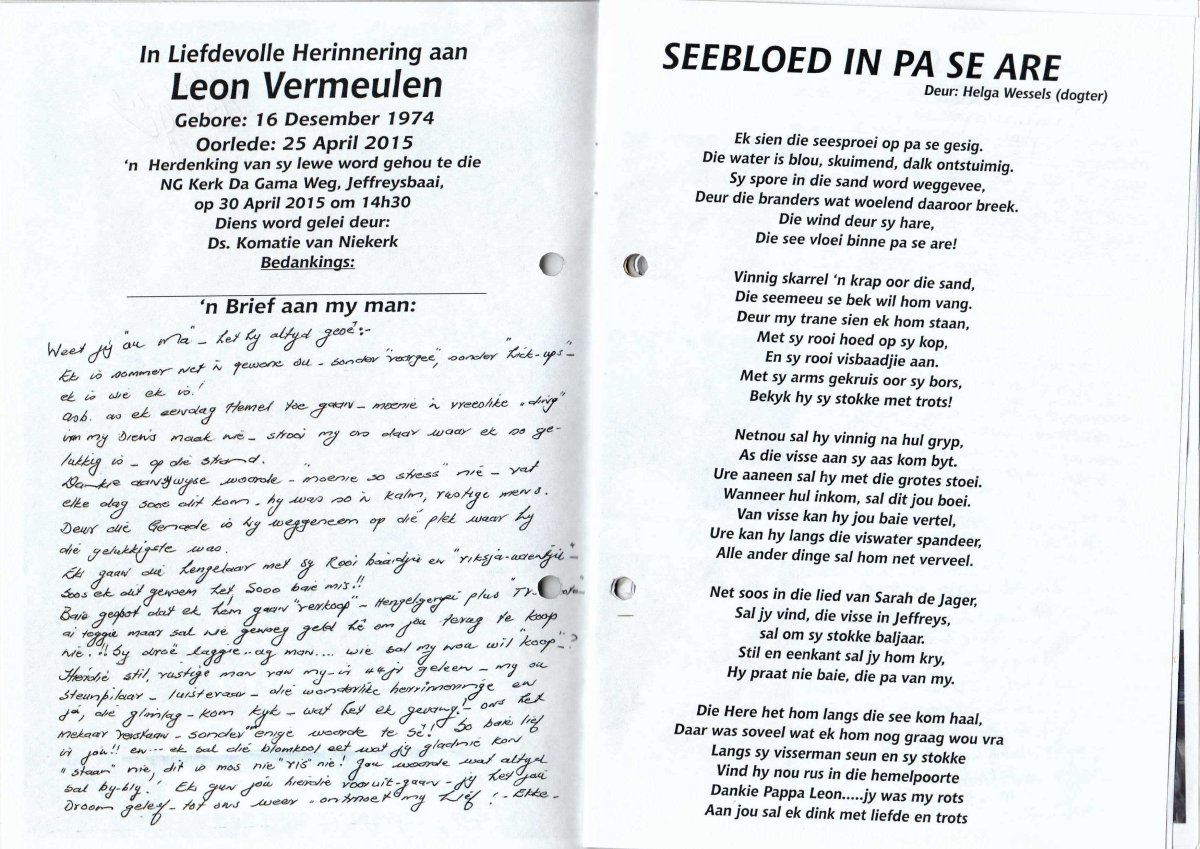 In Liefdevolle Herinnering aan
Leon Vermeulen
Gebore: 16 Desember 1974
Oorlede: 25 April 2015
‘n Herdenking van sy lewe word gehou te die
NG Kerk Da Gama Weg, Jeffreysbaai,
op 30 April 2015 om 14h30
Diens word gelei deur:
Ds. Komatie van Niekerk
Bedankings:
‘n Brief aan my man:
Weet jy "ou Ma" - het hy altyd gesê:-
Ek is sommer net 'n gewone ou - sonder "voorgee", sonder "hick-ups" -
ek is wie ek is!
Asb. as ek eendag Hemel toe gaan - moenie 'n vreeslike "ding"
van my Diens maak nie - strooi my as daar waar ek so ge-
lukkig is - op die strand.
Dankie woorde - "moenie so stress" nie - vat
elke dag soos dit kom - hy was so 'n kalm, rustige mens.
Deur die Genade is hy weggeneem op dié plek waar hy
die gelukkigste was.
Ek gaan die hengelaar met sy Rooi baaidjie en "riksja-waentjie" -
Soos ek dit genoem het Sooo baie mis!!
Baie gespot dat ek hom gaan "verkoop" - Hengelgerei plus
ai toggie maar sal nie genoeg geld hê om jou terug te koop
nie.!! Sy droë laggie...ag man.... wie sal my nou wil "koop" - ?
Hierdie stil, rustige man van my - in 44jr geleen - my ou
steunpilaar - luisteraar - die wonderlike herrinneringe en
ja, die glimlag - kom kyk - wat het ek gevang! - ons het
mekaar verstaan - sonder enige woorde te sê! So baie lief
vir jou!! en --- ek sal die blomkool eet wat jy gladnie kon
"staan" nie, dit is mos nie "vis" nie! Jou woorde wat altyd
sal by-bly! Ek gun jou hierdie vooruit-gaan - jy het jou
Droom geleef - tot ons weer - ontmoet my Lief! - Ekke -
SEEBLOED IN PA SE ARE
Deur: Helga Wessels (dogter)
Ek sien die seesproei op pa se gesig.
Die water is blou, skuimend, dalk ontstuimig.
Sy spore in die sand word weggevee,
Deur die branders wat woelend daaroor breek.
Die wind deur sy hare,
Die see vloei binne pa se are!
Vinnig skarrel ‘n krap oor die sand,
Die seemeeu se bek wil hom vang.
Deur my trane sien ek hom staan,
Met sy rooi hoed op sy kop,
En sy rooi visbaadjie aan.
Met sy arms gekruis oor sy bors,
Bekyk hy sy stokke met trots!
Netnou sal hy vinnig na hul gryp,
As die visse aan sy aas kom byt.
Ure aaneen sal hy met die grotes stoei.
Wanneer hul inkom, sal dit jou boei.
Van visse kan hy jou baie vertel,
Ure kan hy langs die viswater spandeer,
Alle ander dinge sal hom net verveel.
Net soos in die lied van Sarah de Jager,
Sal jy vind, die visse in Jeffreys,
sal om sy stokke baljaar.
Stil en eenkant sal jy hom kry,
Hy praat nie baie, die pa van my.
Die Here het hom langs die see kom haal,
Daar was soveel wat ek hom nog graag wou vra
Langs sy visserman seun en sy stokke
Vind hy nou rus in die hemelpoorte
Dankie Pappa Leon.....jy was my rots
Aan jou sal ek dink met liefde en trots